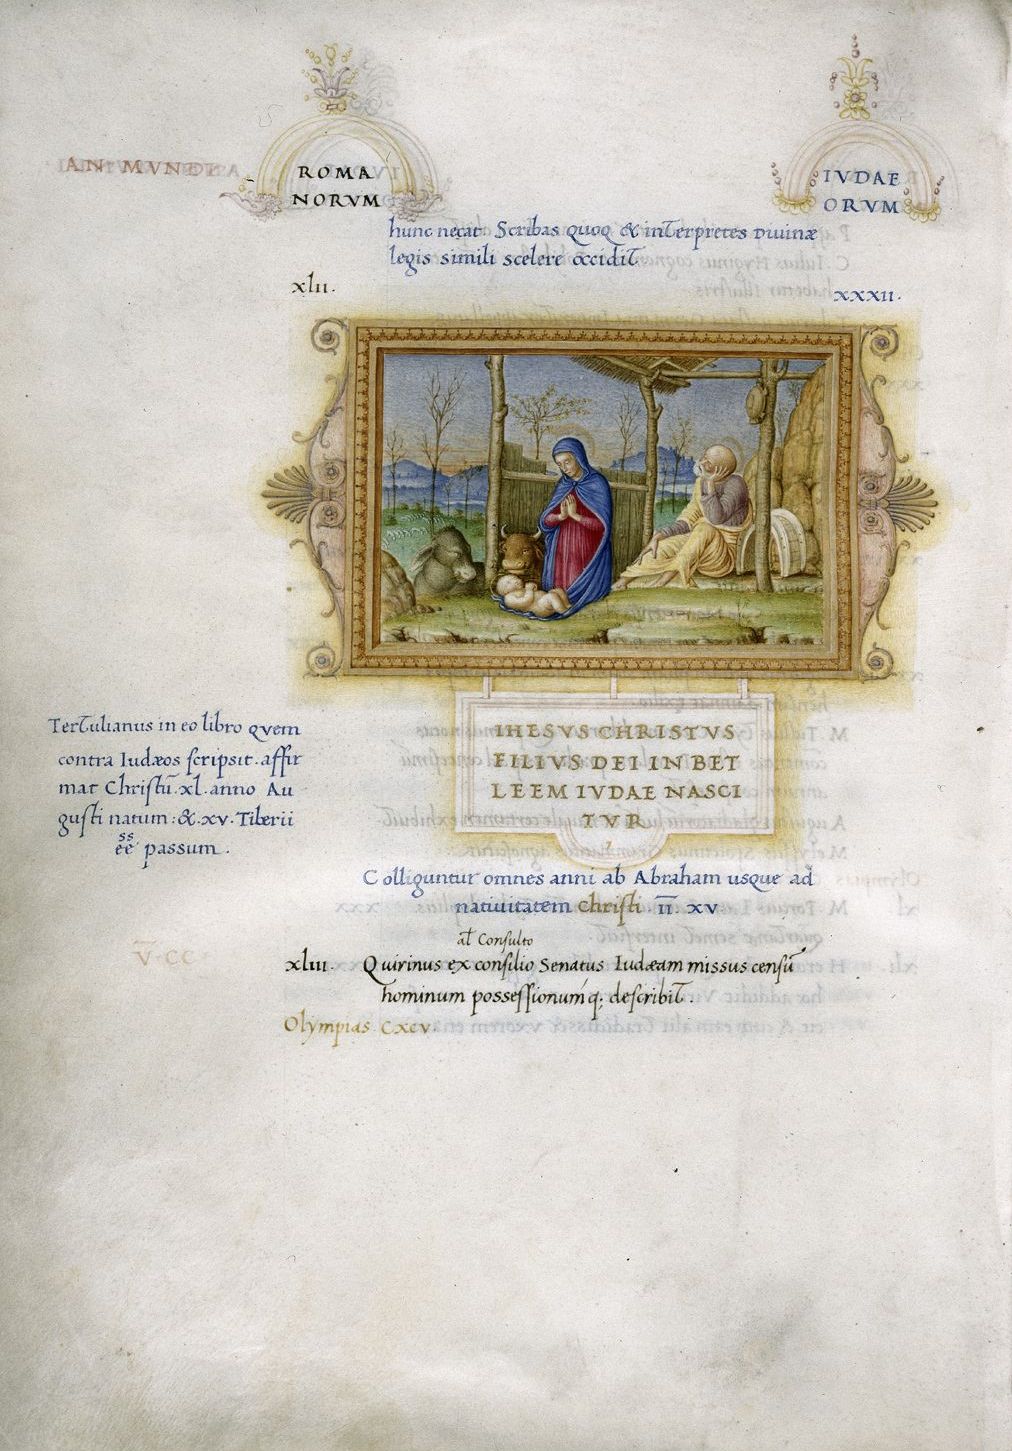 AN. MVNDI
ROMA
NORVM
IVDAE
ORVM
hunc necat Scribas quoq & interpretes diuinæ
legis simili scelere occidit.
xlii.
xxxii.
Tertulianus in eo libro qvem
contra Iudæos scripsit. affir
mat Christū .xl. anno Au
gusti natum: & .xv. Tiberii
ss
ēē passum.
IHESVS CHRISTVS
FILIVS DEI IN BET
LEEM IVDAE NASCI
TVR
Colliguntur omnes anni ab Abraham usque ad
natiuitatem Christi II. XV
al Consulto
xliii. Quirinus ex consilio Senatus Iudæam missus censū
hominum possessionumq; describit.
V̅.CC
Olympias CXCV.